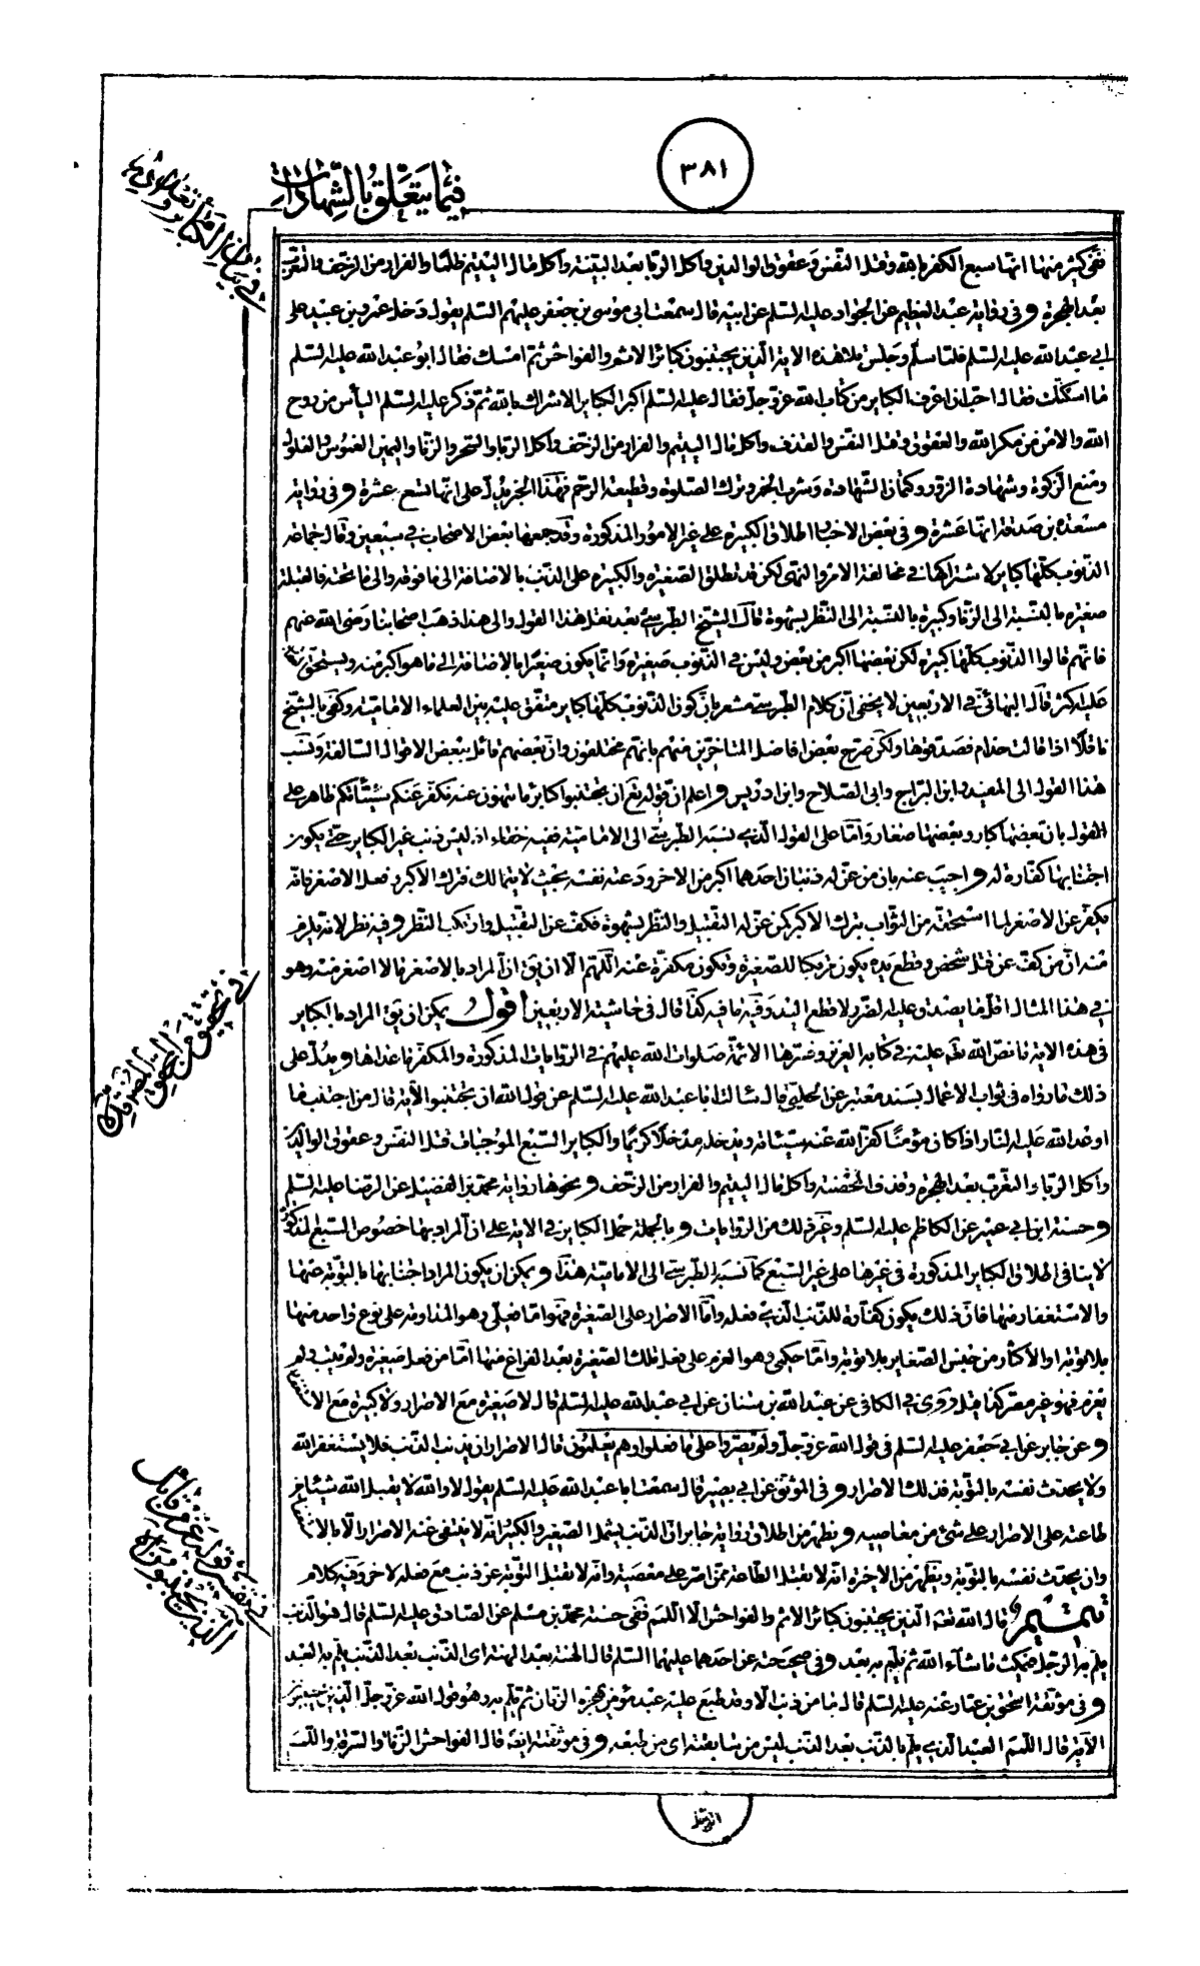 ٣٨١
فيما يتعلق بالشهادات
في بيان الكبائر وما يتعلق بها
ففي كثير منها انها سبع الكفر بالله وقتل النفس وعقوق الوالدين واكل الربا بعد البينة واكل مال اليتيم ظلما والفرار من الزحف والتعرب
بعد الهجرة وفي رواية عبد العظيم عن الجواد عليه السلم عن ابيه قال سمعت ابي موسى بن جعفر عليهم السلم يقول دخل عمرو بن عبيد على
ابي عبد الله عليه السلم فلما سلم وجلس تلا هذه الاية الذين يجتنبون كبائر الاثم والفواحش ثم امسك فقال ابو عبد الله عليه السلم
ما اسكتك فقال احب ان اعرف الكباير من كتاب الله عز وجل فقال عليه السلم اكبر الكباير الاشراك بالله ثم ذكر عليه السلم اليأس من روح
الله والامن من مكر الله والعقوق وقتل النفس والقذف واكل مال اليتيم والفرار من الزحف واكل الربا والسحر والزنا واليمين الغموس والغلول
ومنع الزكوة وشهادة الزور وكتمان الشهادة وشرب الخمر وترك الصلوة وقطيعة الرحم فهذا الخبر يدل على انها تسع عشرة وفي رواية
مسعدة بن صدقة انها عشرة وفي بعض الاخبار اطلاق الكبيرة على غير الامور المذكورة وقد جمعها بعض الاصحاب في سبعين وقال جماعة
الذنوب كلها كباير لاشتراكها في مخالفة الامر والنهي لكن قد تطلق الصغيرة والكبيرة على الذنب بالاضافة الى ما فوقه والى ما تحته فالقبلة
صغيرة بالنسبة الى الزنا وكبيرة بالنسبة الى النظر بشهوة قال الشيخ الطبرسي بعد نقل هذا القول والى هذا ذهب اصحابنا رضي الله عنهم
فانهم قالوا الذنوب كلها كبيرة لكن بعضها اكبر من بعض وليس في الذنوب صغيرة وانما يكون صغيرا بالاضافة الى ما هو اكبر منه ويستحق
عليه اكثر قال البهائي في الاربعين لا يخفى ان كلام الطبرسي مشعر بان كون الذنوب كلها كباير متفق عليه بين العلماء الامامية وكفى بالشيخ
ناقلا اذا قالت حذام فصدقوها ولكن صرح بعض افاضل المتاخرين منهم بانهم مختلفون وان بعضهم قائل ببعض الاقوال السالفة ونسب
هذا القول الى المفيد وابن البراج وابي الصلاح وابن ادريس واعلم ان قوله تع ان تجتنبوا كبائر ما تنهون عنه نكفر عنكم سيئاتكم ظاهر على
القول بان بعضها كبار وبعضها صغار واما على القول الذي نسبه الطبرسي الى الامامية ففيه خفاء اذ ليس ذنب غير الكباير حتى يكون
اجتنابها كفارة له واجيب عنه بان من عن له ذنبان احدهما اكبر من الاخر ودعته نفسه بحيث لا يتمالك فترك الاكبر وفعل الاصغر فانه
يكفر عن الاصغر لما استحقه من الثواب بترك الاكبر كمن عن له التقبيل والنظر بشهوة فكف عن التقبيل وارتكب النظر وفيه نظر لانه يلزم
منه ان من كف عن قتل شخص وقطع يده يكون مرتكبا للصغيرة وتكون مكفرة عنه اللهم الا ان يق ان المراد بالاصغر ما لا اصغر منه وهو
في هذا المثال اقل ما يصدق عليه الضرر لا قطع اليد وفيه ما فيه كذا قال في حاشية الاربعين اقول يمكن ان يق المراد بالكباير
في هذه الاية ما نص الله تعه عليه في كتابه العزيز وفسرها الائمة صلوات الله عليهم في الروايات المذكورة والمكفر ما عداها ويدل على
ذلك ما رواه في ثواب الاعمال بسند معتبر عن الحلبي قال سالت ابا عبد الله عليه السلم عن قول الله ان تجتنبوا الاية قال من اجتنب ما
اوعد الله عليه النار اذا كان مؤمنا كفر الله عنه سيئاته ويدخله مدخلا كريما والكباير السبع الموجبات قتل النفس وعقوق الوالدين
واكل الربا والتعرب بعد الهجرة وقذف المحصنة واكل مال اليتيم والفرار من الزحف ونحوها رواية محمد بن الفضيل عن الرضا عليه السلم
وحسنة ابن ابي عمير عن الكاظم عليه السلم وغير ذلك من الروايات وبالجملة حمل الكباير في الاية على ان المراد بها خصوص السبع المذكورة
لا ينافي اطلاق الكباير المذكورة في غيرها على غير السبع كما نسبه الطبرسي الى الامامية هذا ويمكن ان يكون المراد اجتنابها بالتوبة عنها
والاستغفار منها فان ذلك يكون كفارة للذنب الذي فعله واما الاصرار على الصغيرة فهو اما فعلي وهو المداومة على نوع واحد منها
بلا توبة او الاكثار من جنس الصغاير بلا توبة واما حكمي وهو العزم على فعل تلك الصغيرة بعد الفراغ منها اما من فعل صغيرة ولم يتب ولم
يعزم فهو غير مصر كذا قيل روى في الكافي عن عبد الله بن سنان عن ابي عبد الله عليه السلم قال لا صغيرة مع الاصرار ولا كبيرة مع الاستغفار
وعن جابر عن ابي جعفر عليه السلم في قول الله عز وجل ولم يصروا على ما فعلوا وهم يعلمون قال الاصرار ان يذنب الذنب فلا يستغفر الله
ولا يحدث نفسه بالتوبة فذلك الاصرار وفي الموثق عن ابي بصير قال سمعت ابا عبد الله عليه السلم يقول لا والله لا يقبل الله شيئا من
طاعته على الاصرار على شئ من معاصيه ويظهر من اطلاق رواية جابر ان الذنب يشمل الصغير والكبير انه لا ينتفى عنه الاصرار الا بالاستغفار
وان يحدث نفسه بالتوبة ويظهر من الاخيرة انه لا يقبل الطاعة ممن اصر على معصية وانه لا تقبل التوبة عن ذنب مع فعله لاخر وفيه كلام
تتميم قال الله تعه الذين يجتنبون كبائر الاثم والفواحش الا اللمم ففي حسنة محمد بن مسلم عن الصادق عليه السلم قال هو الذنب
يلم به الرجل فيمكث ما شاء الله ثم يلم به بعد وفي صحيحته عن احدهما عليهما السلم قال الهنة بعد الهنة اي الذنب بعد الذنب يلم به العبد
وفي موثقة اسحق بن عمار عنه عليه السلم قال ما من ذنب الا وقد طبع عليه عبد مؤمن يهجره الزمان ثم يلم به وهو قول الله عز وجل الذين يجتنبون
الاية قال اللمم العبد الذي يلم بالذنب بعد الذنب ليس من سابقته اي من طبعه وفي موثقته ايضه قال الفواحش الزنا والسرقة واللمم
في تحقيق من المحقق
في تفسير قوله عز من قائل
الذين يجتنبون